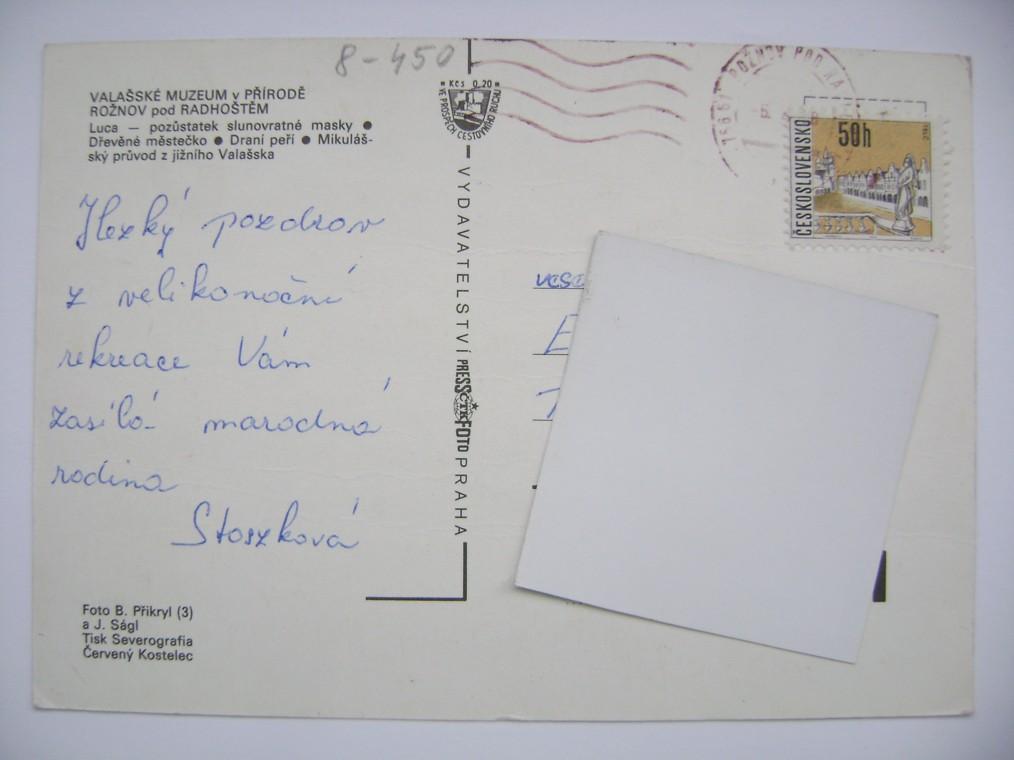 8-450
VALAŠSKÉ MUZEUM v PŘÍRODĚ
ROŽNOV pod RADHOŠTĚM
Luca — pozůstatek slunovratné masky ●
Dřevěné městečko ● Draní peří ● Mikuláš-
ský průvod z jižního Valašska
Hezký pozdrav
z velikonoční
rekreace Vám
zasílá marodná
rodina
Stoszková
Foto B. Přikryl (3)
a J. Ságl
Tisk Severografia
Červený Kostelec
Kčs 0,20
VE PROSPĚCH CESTOVNÍHO RUCHU
VYDAVATELSTVÍ PRESSFOTO PRAHA
ČTK
ROŽNOV POD RA
ČESKOSLOVENSKO
50h